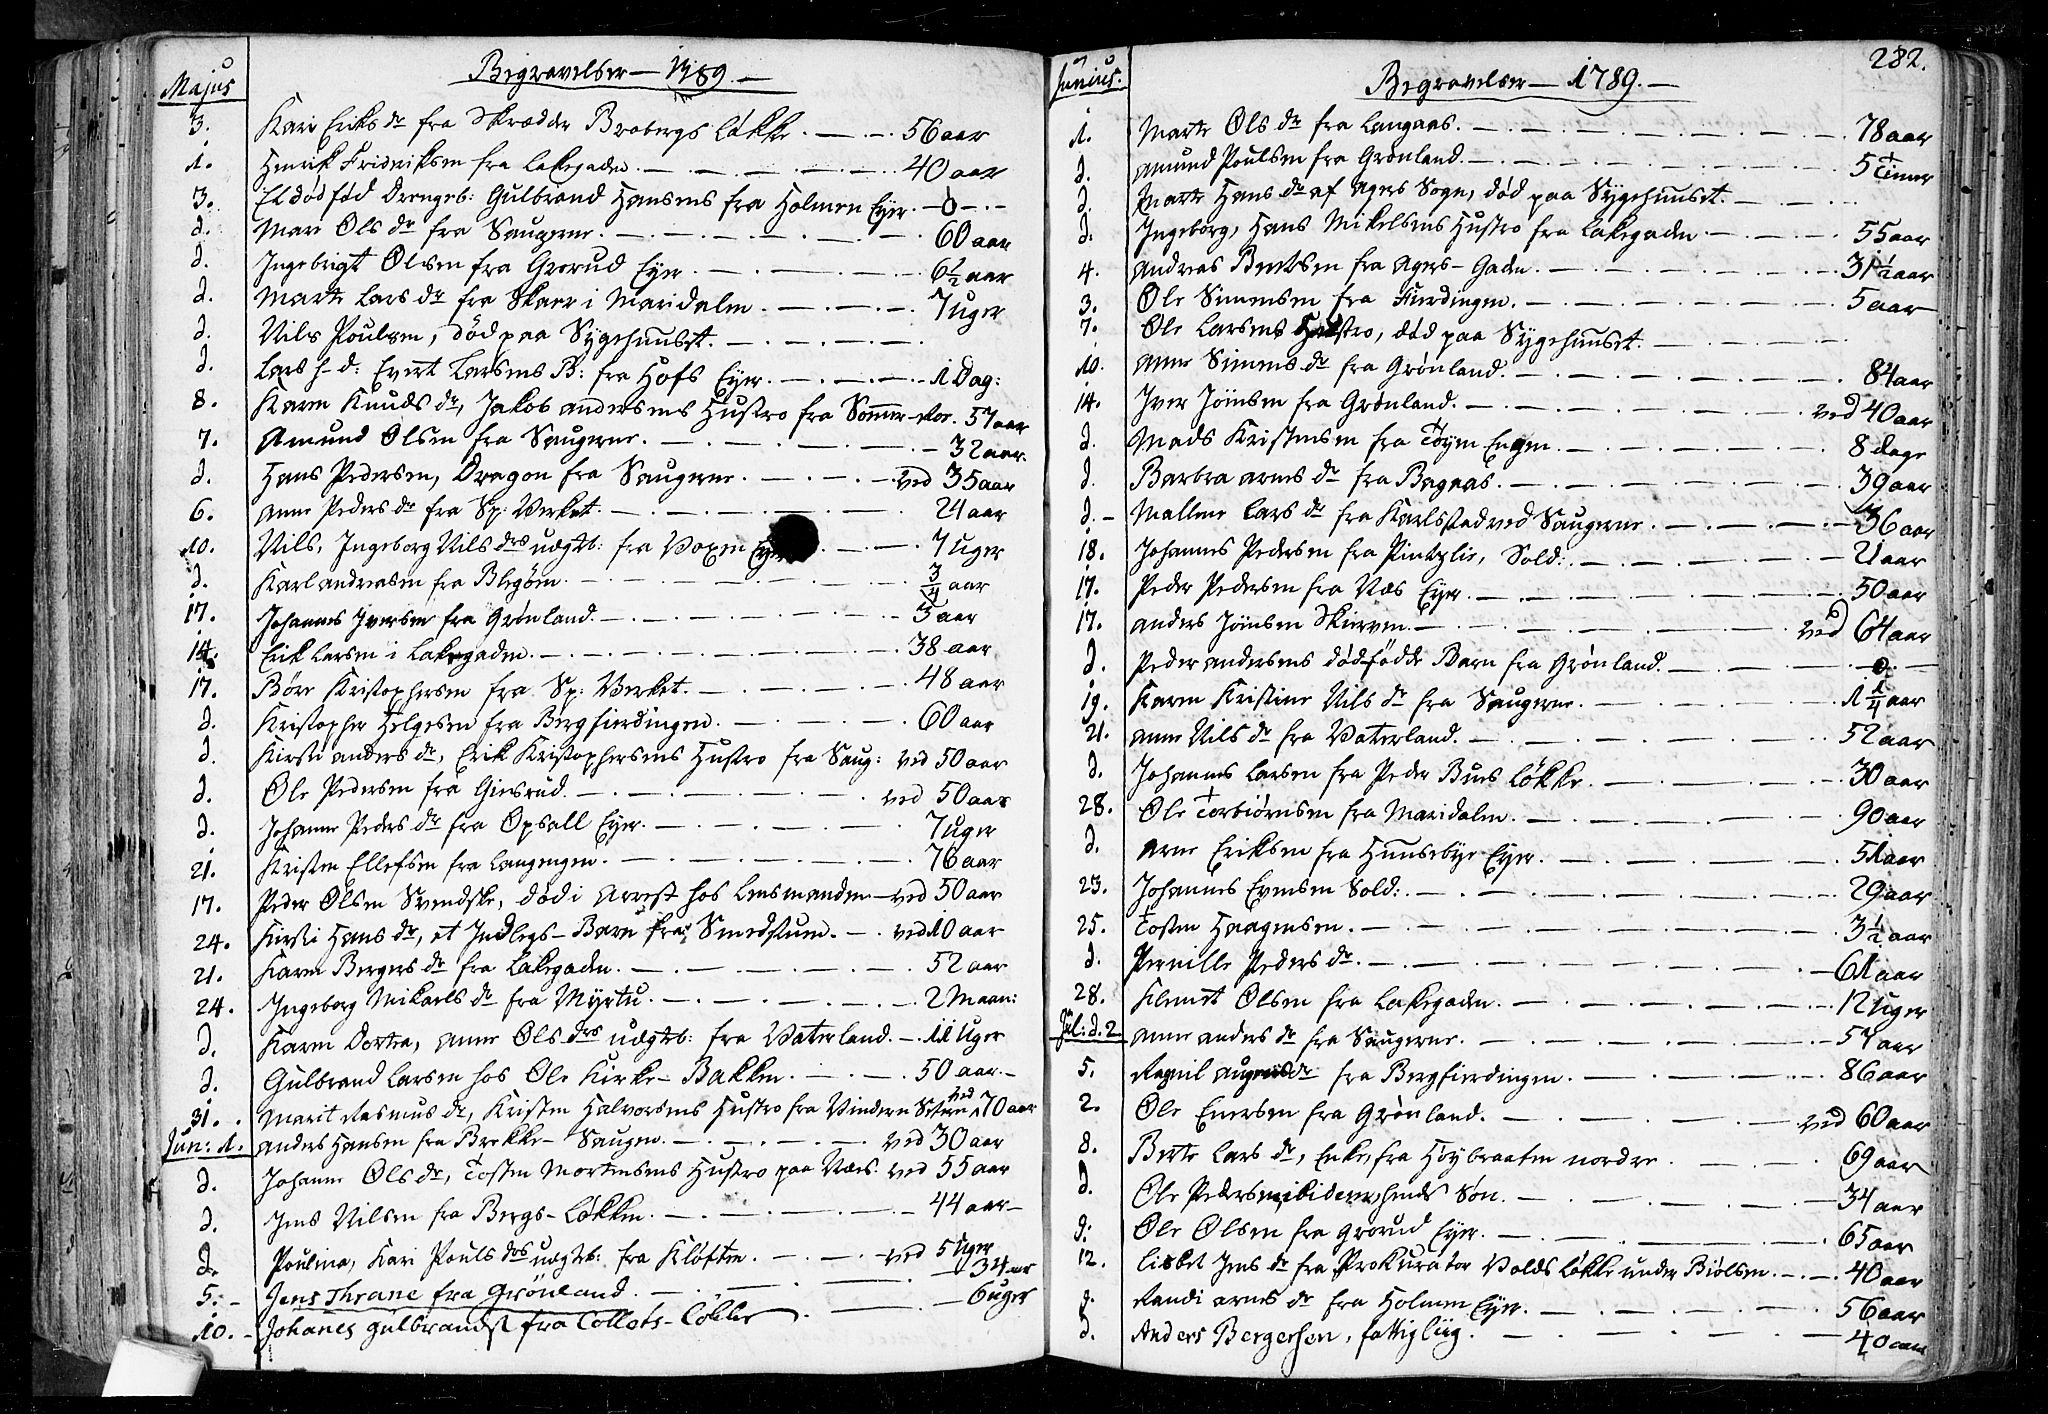 Majus
Begravelser — 1789. —
3. Kari Eriks dr fra Skrædder Brobergs Løkke. — — 56 aar
1. Henrik Fridriksen fra Lakegaden. — 40 aar
3. Et dødfød Drengeb: Gulbrand Hansens fra Holmen Eyer. — 0 —
d. Mari Ols dr fra Saugerne. — 60 aar
d. Ingebrigt Olsen fra Grorud Eyer. — 6½ aar
d. Marte Lars dr fra Skaer i Maridalen. — 7 Uger
d. Nils Poulsen, død paa Sygehuuset. —
d. Lars h-d: Evert Larsens B: fra Hofs Eyer. — 1 Dag:
8. Karen Knuds dr, Jakob Andersens Hustro fra Sommer-. 57 aar
7. Amund Olsen fra Saugerne. — 32 aar.
d. Hans Pedersen, Dragon fra Saugerne. — ved 35 aar
6. Anne Peders dr fra Sp: Verket. — 24 aar
10. Nils, Ingeborg Nils drs uægtb: fra Voxen Eyer — 7 Uger
d. Karl Andreasen fra Blegøen. — ¾ aar
17. Johannes Iversen fra Grønland. — 5 aar
14. Erik Larsen i Lakegaden. — 38 aar
17. Børe Kristophersen fra Sp: Verket. — 48 aar
d. Kristopher Helgesen fra Bergfierdingen. — 60 aar
d. Kirsti Anders dr, Erik Kristophersens Hustro fra Saug: ved 50 aar
d. Ole Pedersen fra Giesrud. — ved 50 aar
d. Johanne Peders dr fra Opsall Eyer. — 7 Uger
21. Kristen Ellefsen fra Langengen. — 76 aar
17. Peder Olsen Svendske, død i Arrest hos Lensmanden — ved 50 aar
24. Kirsti Hans dr, et Indlegs-Barn fra Smedstuen. — ved 10 aar
21. Karen Bergers dr fra Lakegaden. — 52 aar
24. Ingeborg Mikaels dr fra Myrtu. — 2 Maan:
d. Karen Dortea, Anne Ols drs uægtb: fra Vaterland. — 11 Uger
d. Gulbrand Larsen hos Ole Kirke-Bakken. — 50 aar. —
31. Marit Rasmus dr, Kristen Halvorsens Hustro fra Vindern ved 70 aar
Jun: 1. Anders Hansen fra Brekke-Saugen. — ved 30 aar
d. Johanne Ols dr, Tosten Mortensens Hustro paa Næs. ved 55 aar
d. Jens Nilsen fra Bergs-Løkken. — 44 aar —
d. Poulina, Kari Pouls drs uægtb: fra Kløften. — ved 5 Uger
5. — Jens Thrane fra Grönland. — 34 aar
10. — Johanes Gulbrands fra Collets-Løkke. — 6 uger
Junius.
Begravelser — 1789. —
282.
1. Marte Ols dr fra Langaas. — 78 aar
d. Amund Poulsen fra Grønland. — 5 Timer
d. Marte Hans dr af Agers Sogn, død paa Sygehuuset. —
d. Ingeborg, Hans Mikelsens Hustro fra Lakegaden — 55 aar
4. Andreas Berntsen fra Agers-Gaden. — 31½ aar
3. Ole Simensen fra Fierdingen. — 5 aar
7. Ole Larsens Hustro, død paa Sygehuuset. —
10. Anne Simens dr fra Grønland. — 84 aar
14. Iver Jönsen fra Grønland. — ved 40 aar
d. Mads Kristensen fra Tøyen Engen. — 8 dage
d. Barbra Arnes dr fra Bagaas. — 39 aar
d. — Mallene Lars dr fra Karlstad ved Saugerne. — 36 aar
18. Johannes Pedersen fra Pintzlie, Sold: — 21 aar
17. Peder Pedersen fra Næs Eyer. — 50 aar
17. Anders Jönsen Skirven. — ved 64 aar
d. Peder Andersens dødfødde Barn fra Grønland. — 0. —
19. Karen Kristine Nils dr fra Saugerne. — 1¼ aar
21. Anne Nils dr fra Vaterland. — 52 aar
d. Johannes Larsen fra Peder Bues Løkke. — 30 aar
28. Ole Torbiørnsen fra Maridalen. — 90 aar
d. Arne Eriksen fra Huusebye Eyer. — 51 aar
23. Johannes Evensen Sold: — 29 aar
25. Tosten Haagensen. — 3½ aar
d. Pernille Peders dr. — 61 aar
28. Klemet Olsen fra Lakegaden. — 12 Uger
Jul: d. 2 Anne Anders dr fra Saugerne. — 57 aar
5. Ragnil dr fra Bergfierdingen. — 86 aar
2. Ole Enersen fra Grønland. — ved 60 aar
8. Berte Lars dr, Enke, fra Høybraaten nordre. — 69 aar
d. Ole Pedersen, ibidem, hendes Søn. — 34 aar
d: Ole Olsen fra Grorud Eyer. — 65 aar
12. Lisbet Jens dr fra Prokurator Volds Løkke under Biølsen. — 40 aar
d. Randi Arnes dr fra Holmen Eyer. — 56 aar
d. Anders Bergersen, fattiglig. — 40 aar